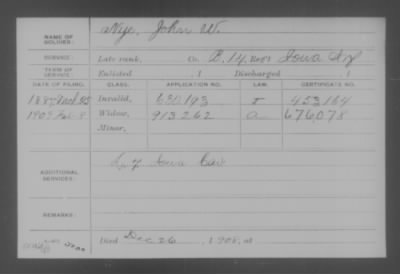 NAME OF SOLDIER: Nye, John W.
SERVICE: Late rank, Co. B, 14 Reg't Iowa Inf
TERM OF SERVICE: Enlisted , 1 Discharged , 1
DATE OF FILING. CLASS. APPLICATION NO. LAW. CERTIFICATE NO.
1887 Invalid, 630193 453164
1909 Feb 8 Widow, 913262 676,078
Minor,
ADDITIONAL SERVICES: 7 Iowa Cav
REMARKS:
Died Dec 26, 1908, at